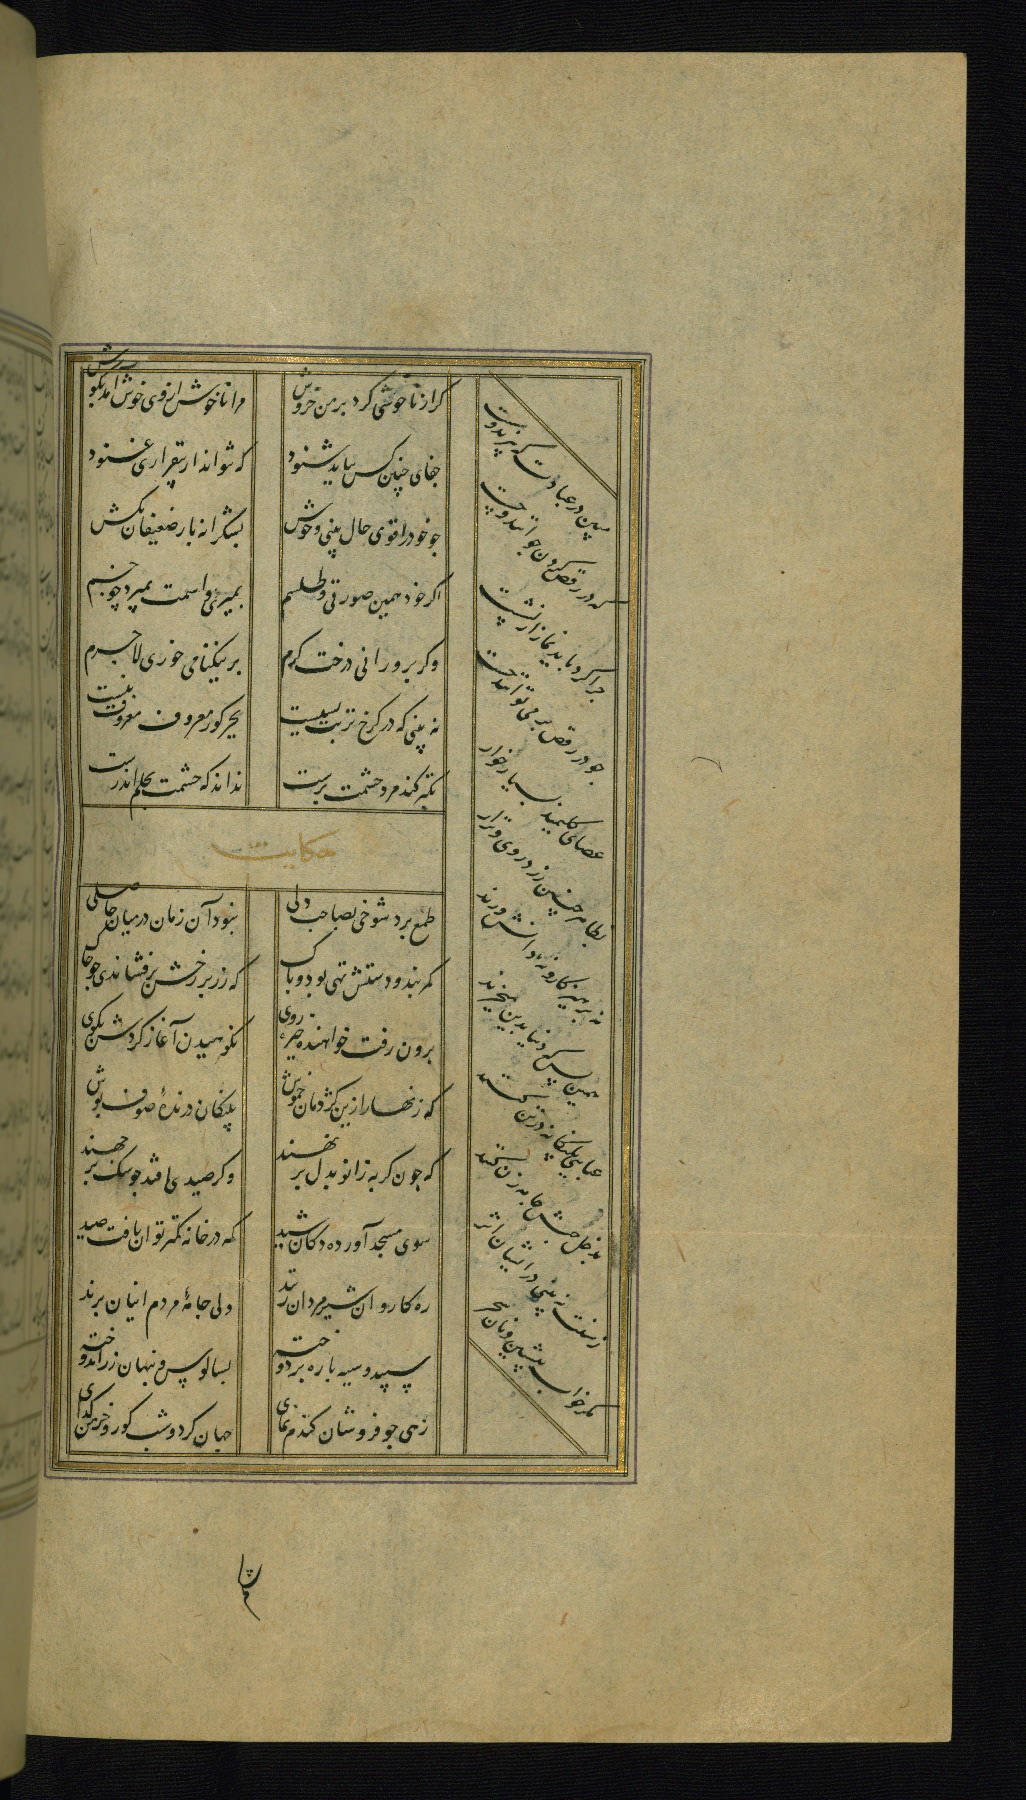 کر از ناخوشی کرد بر من خروش مرا ناخوش از وی خوش آمد بکوش
جفای چنین کس بباید شنود که نتواند از بیقراری غنود
جو خود را قوی حال بینی و خوش بشکرانه بار ضعیفان بکش
اکر خود همین صورتی و طلسم بمیری و اسمت بمیرد چو جسم
وکر پرورانی درخت کرم بر نیکنامی خوری لاجرم
نه بینی که در کرخ تربت بسیست بجز کور معروف معروف نیست
تکبر کند مرد حشمت پرست نداند که حشمت بحلم اندرست
حکایت
طمع برد شوخی بصاحب دلی نبود آن زمان در میان حاصلی
کمربند و دستش تهی بود و پاک که زر بر رخش بر فشاندی جو خاک
برون رفت خواهنده خیره روی نکوهیدن آغاز کردش بکوی
که زنهار ازین کژدمان خموش پلنکان درندهٔ صوف پوش
که جون کربه زانو بدل بر نهند وکر صیدی افتد جو سک بر جهند
سوی مسجد آورده دکان شید که در خانه کمتر توان یافت صید
ره کاروان شیرمردان زنند ولی جامهٔ مردم اینان برند
سپید و سیه پاره بر دوخته بسالوس و پنهان زر اندوخته
زهی جو فروشان کندم نمای جهان کرد و شب کور و خرمن کدای
مبین در عبادت که پیرند و سست
که در رقص کردن جوانند و چست
چرا کرد باید نماز از نشست
جو در رقص بر می توانند جست
عصای کلیمند بسیار خوار
بظاهر چنین زرد روی و نزار
نه پرهیز کار و نه دانشورند
همین بس که دنیا بدین میخرند
عبایی پلنکانه در تن کنند
بدخل حبش جامه زن کنند
ز سنت نه بینی در ایشان اثر
مکر خواب پیشین و نان سحر